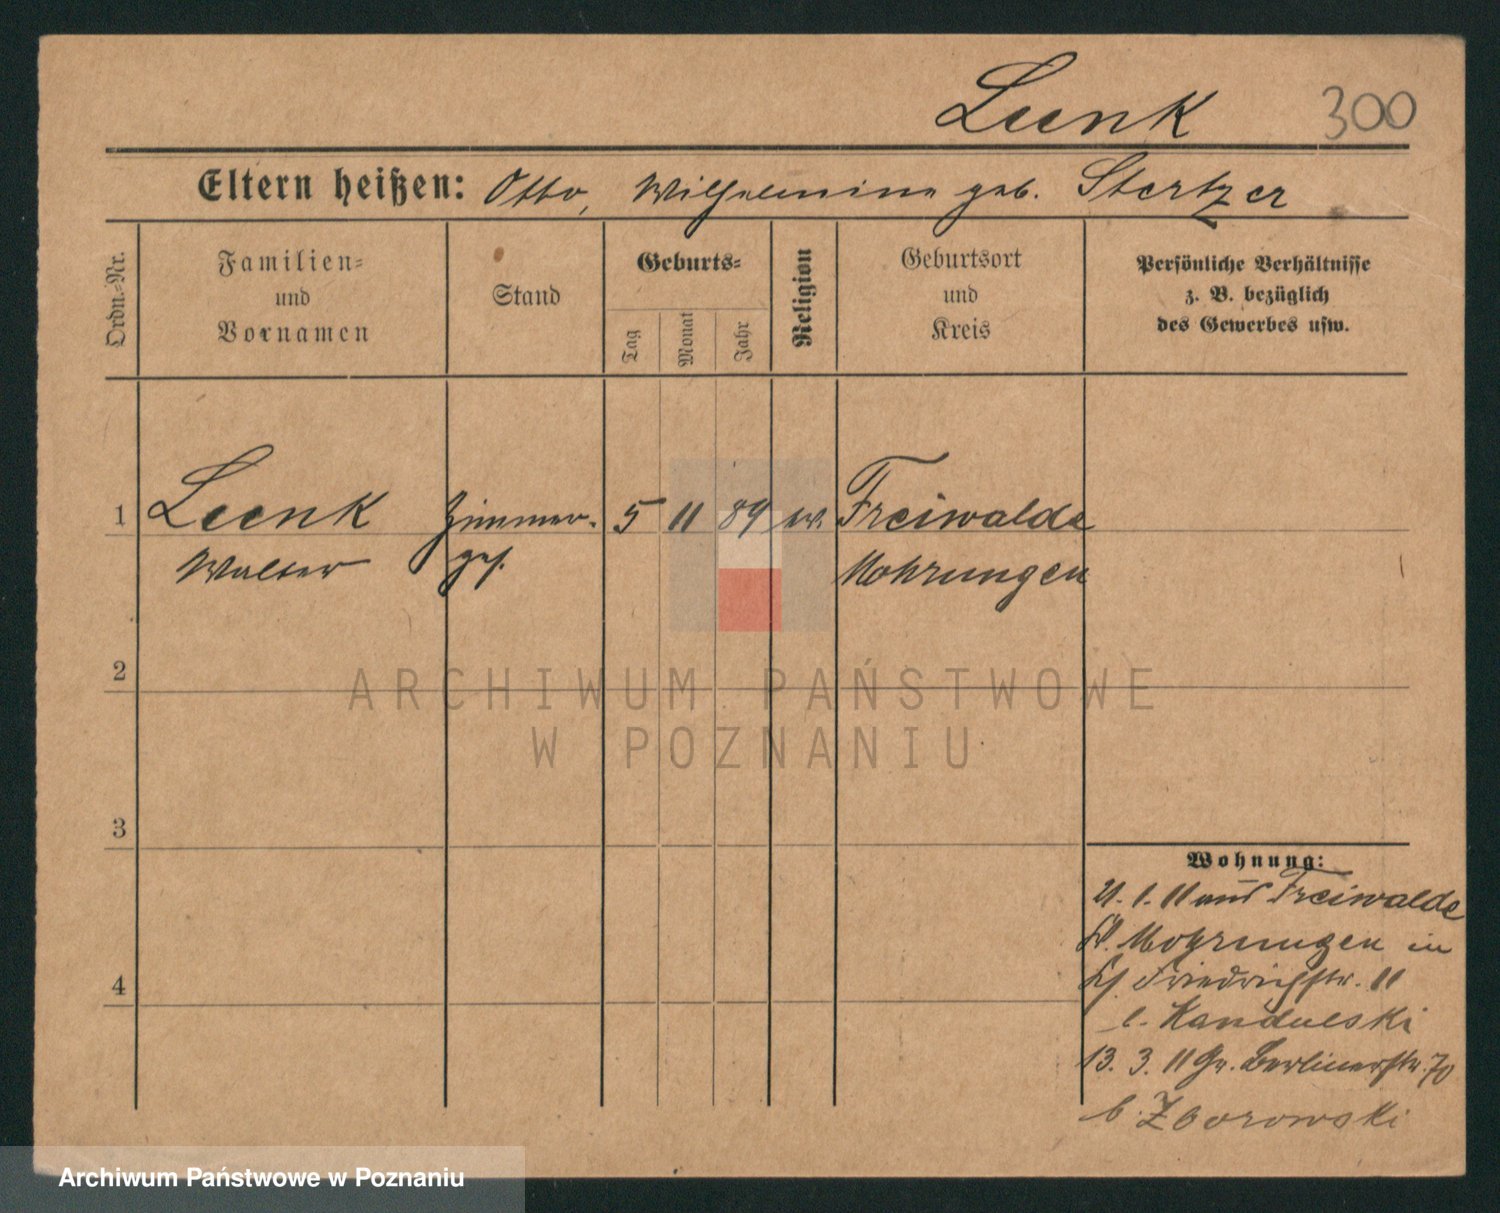 Leenk 300
Eltern heißen: Otto, Wilhelmine geb. Stertzer
Ordn.-Nr.
Familien- und Vornamen
Stand
Geburts-
Tag
Monat
Jahr
Religion
Geburtsort und Kreis
Persönliche Verhältnisse
z. B. bezüglich
des Gewerbes usw.
1 Leenk Zimmer- 5 11 89 ev. Freiwalde
Walter ges. Mohrungen
2
ARCHIWUM PAŃSTWOWE
W POZNANIU
3
Wohnung:
21. 1. 11 aus Freiwalde
Kr. Mohrungen in
Friedrichstr. 11
b. Kandulski
13. 3. 11 Gr. Berlinerstr. 70
b. Zborowski
4
Archiwum Państwowe w Poznaniu